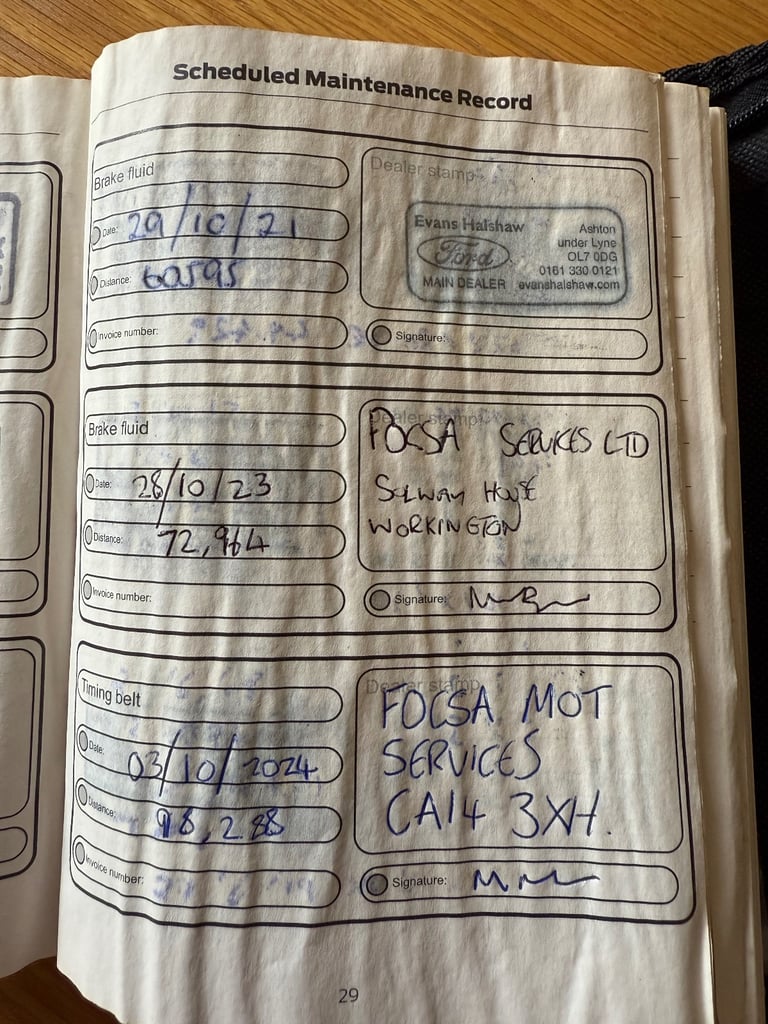 Scheduled Maintenance Record
Brake fluid
Date: 29/10/21
Distance: 60595
Invoice number:
Dealer stamp
Evans Halshaw
Ford
MAIN DEALER
Ashton
under Lyne
OL7 0DG
0161 330 0121
evanshalshaw.com
Signature:
Brake fluid
Date: 28/10/23
Distance: 72,964
Invoice number:
Dealer stamp
FOCSA SERVICES LTD
SOLWAY HOUSE
WORKINGTON
Signature:
Timing belt
Date: 03/10/2024
Distance: 98,288
Invoice number:
Dealer stamp
FOCSA MOT
SERVICES
CA14 3XH.
Signature:
29